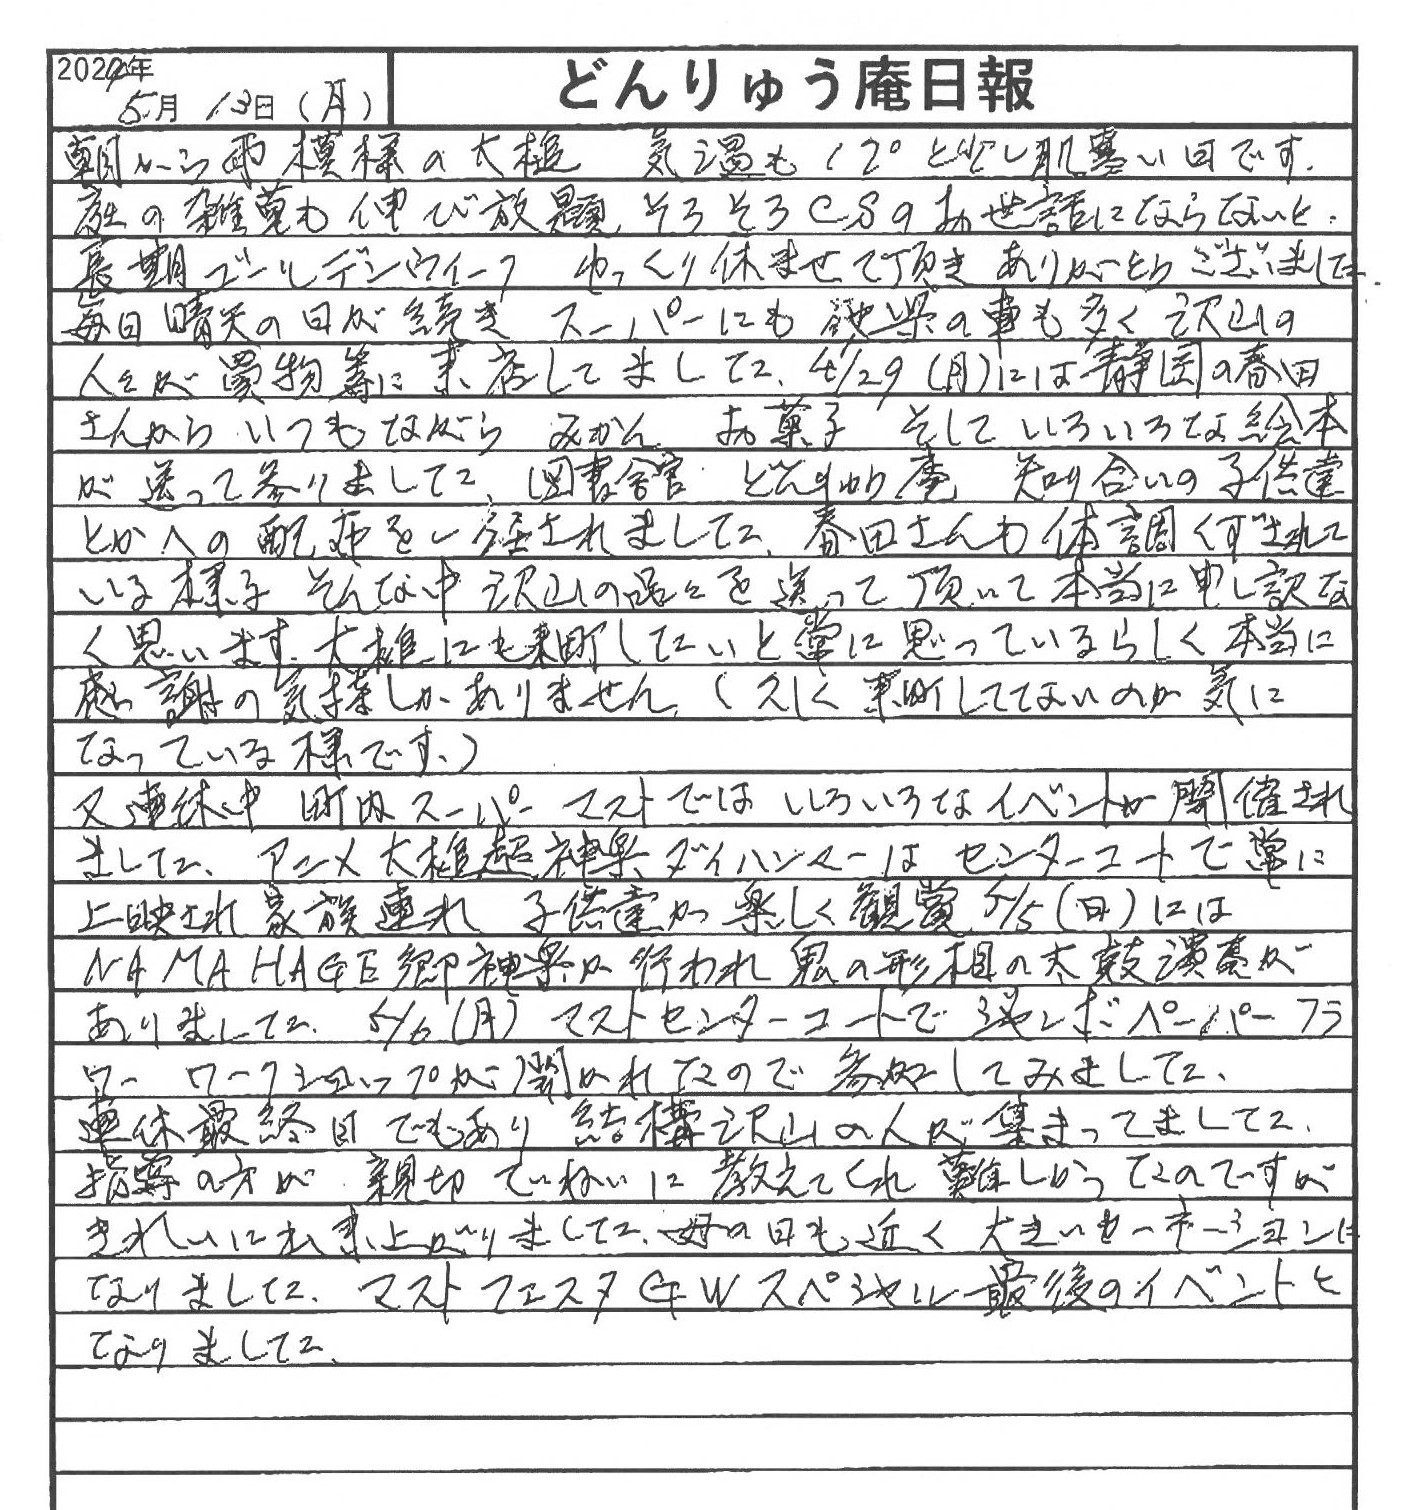 2024年
5月 13日 (月)
どんりゅう庵日報
朝から雨模様の大槌 気温も 12°と少し肌寒い日です.
庭の雑草も伸び放題, そろそろCSのお世話にならないと.
長期ゴールデンウイーク ゆっくり休ませて頂き ありがとうございました
毎日晴天の日が続き スーパーにも他県の車も多く 沢山の
人々が買物等に来店してました、4/29 (月)には静岡の春田
さんから いつもながら みかん お菓子 そしていろいろな絵本
が送って参りました、図書館 どんりゅう庵 知り合いの子供達
とかへの配布を一任されました、春田さんも体調くずされて
いる様子 そんな中 沢山の品々を送って頂いて本当に申し訳な
く思います. 大槌にも来町したいと常に思っているらしく本当に
感謝の気持しかありません. (久しく来町してないのが気に
なっている様です.)
又連休中 町内スーパー マストではいろいろなイベントが開催され
ました、アニメ大槌超神楽ダイハンマーは センターコートで常に
上映され家族連れ 子供達が楽しく観賞, 5/5 (日)には
NAMAHAGE郷神楽が行われ鬼の形相の太鼓演奏が
ありました. 5/6 (月) マストセンターコートで ジャンボペーパーフラ
ワー ワークショップが開かれたので参加してみました、
連休最終日でもあり 結構沢山の人が集まってました、
指導の方が 親切ていねいに教えてくれ難しかったのですが
きれいに出来上がりました、母の日も近く 大きいカーネーションに
なりました、マストフェスタGWスペシャル最後のイベントと
なりました、